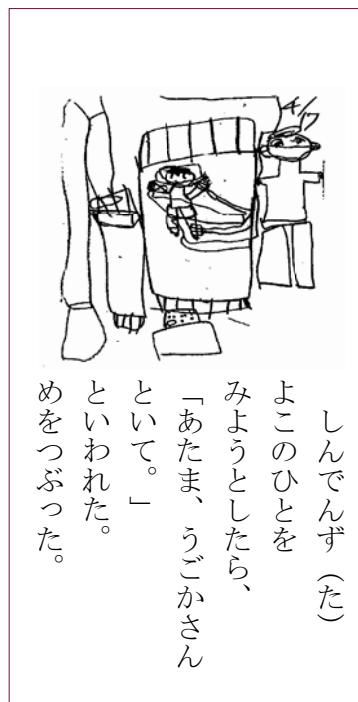 しんでんず（た）
よこのひとを
みようとしたら、
「あたま、うごかさん
といて。」
といわれた。
めをつぶった。